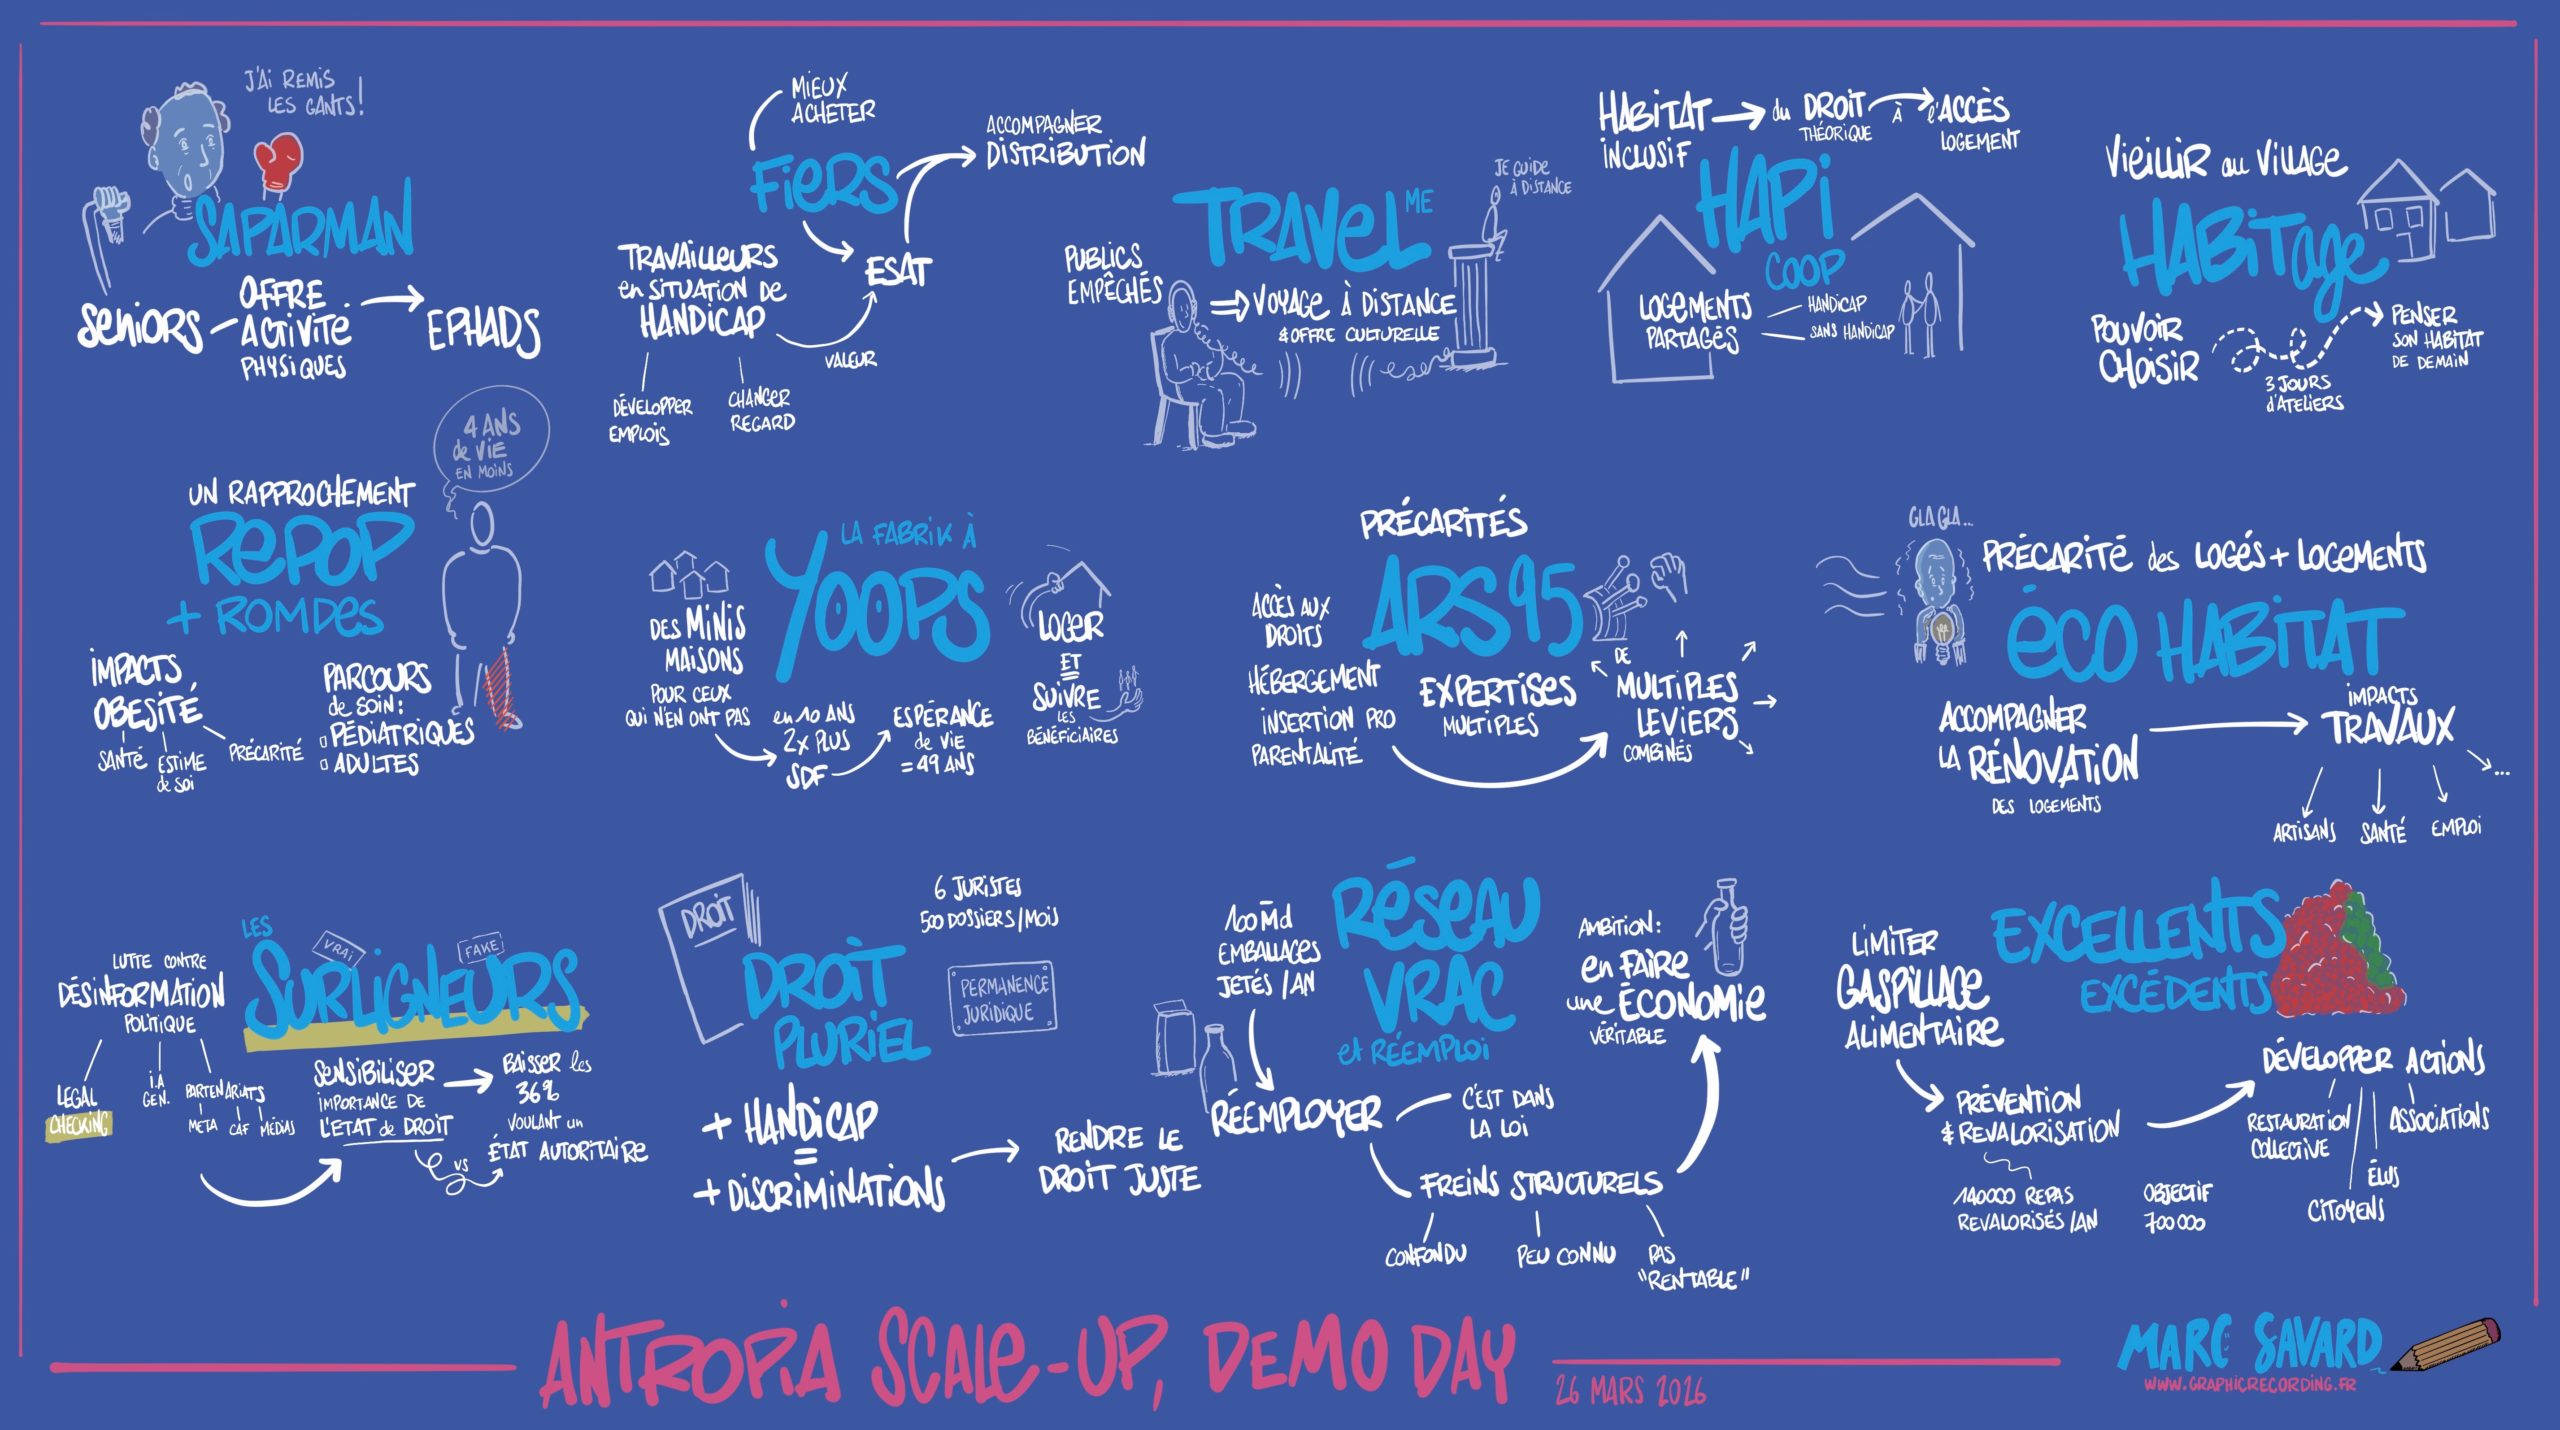 J'AI REMIS
LES GANTS!
SAPARMAN
SENIORS
OFFRE
ACTIVITÉ
PHYSIQUES
EPHADS
MIEUX
ACHETER
FIERS
ACCOMPAGNER
DISTRIBUTION
TRAVAILLEURS
en SITUATION DE
HANDICAP
ESAT
VALEUR
DÉVELOPPER
EMPLOIS
CHANGER
REGARD
TRAVEL ME
JE GUIDE
À DISTANCE
PUBLICS
EMPÊCHÉS
VOYAGE À DISTANCE
& OFFRE CULTURELLE
HABITAT
INCLUSIF
du DROIT
THÉORIQUE
À
l'ACCÈS
LOGEMENT
HAPI
COOP
LOGEMENTS
PARTAGÉS
HANDICAP
SANS HANDICAP
VIEILLIR au VILLAGE
HABITage
POUVOIR
CHOISIR
3 JOURS
d'ATELIERS
PENSER
SON HABITAT
DE DEMAIN
4 ANS
de VIE
EN MOINS
UN RAPPROCHEMENT
REPOP
+ ROMDES
IMPACTS
OBESITÉ
SANTÉ
ESTIME
de soi
PRÉCARITÉ
PARCOURS
de SOIN:
PÉDIATRIQUES
ADULTES
LA FABRIK À
YOOPS
DES MINIS
MAISONS
POUR CEUX
QUI N'EN ONT PAS
en 10 ANS
2x PLUS
SDF
ESPÉRANCE
de vie
= 49 ANS
LOGER
ET
SUIVRE
LES
BÉNÉFICIAIRES
PRÉCARITÉS
ARS 95
ACCÈS AUX
DROITS
HÉBERGEMENT
INSERTION PRO
PARENTALITÉ
EXPERTISES
MULTIPLES
DE
MULTIPLES
LEVIERS
COMBINÉS
GLA GLA...
PRÉCARITÉ des LOGÉS + LOGEMENTS
ÉCO HABITAT
ACCOMPAGNER
LA RÉNOVATION
DES LOGEMENTS
IMPACTS
TRAVAUX
...
ARTISANS
SANTÉ
EMPLOI
LES
SURLIGNEURS
VRAI
FAKE
LUTTE CONTRE
DÉSINFORMATION
POLITIQUE
LEGAL
CHECKING
I.A
GEN.
PARTENARIATS
META
CAF
MÉDIAS
SENSIBILISER
IMPORTANCE DE
L'ETAT de DROIT
VS
BAISSER les
36%
VOULANT un
ÉTAT AUTORITAIRE
DROIT
DROIT
PLURIEL
6 JURISTES
500 DOSSIERS/MOIS
PERMANENCE
JURIDIQUE
+ HANDICAP
=
+ DISCRIMINATIONS
RENDRE LE
DROIT JUSTE
RÉSEAU
VRAC
et RÉEMPLOI
100 Md
EMBALLAGES
JETÉS /AN
RÉEMPLOYER
C'EST DANS
LA LOI
FREINS STRUCTURELS
CONFONDU
PEU CONNU
PAS
"RENTABLE"
AMBITION:
en FAIRE
une ÉCONOMIE
VÉRITABLE
EXCELLENTS
EXCÉDENTS
LIMITER
GASPILLAGE
ALIMENTAIRE
PRÉVENTION
& REVALORISATION
140000 REPAS
REVALORISÉS /AN
OBJECTIF
700 000
DÉVELOPPER ACTIONS
RESTAURATION
COLLECTIVE
CITOYENS
ÉLUS
ASSOCIATIONS
ANTROPIA SCALE-UP, DEMO DAY
26 MARS 2026
MARC SAVARD
WWW.GRAPHICRECORDING.FR